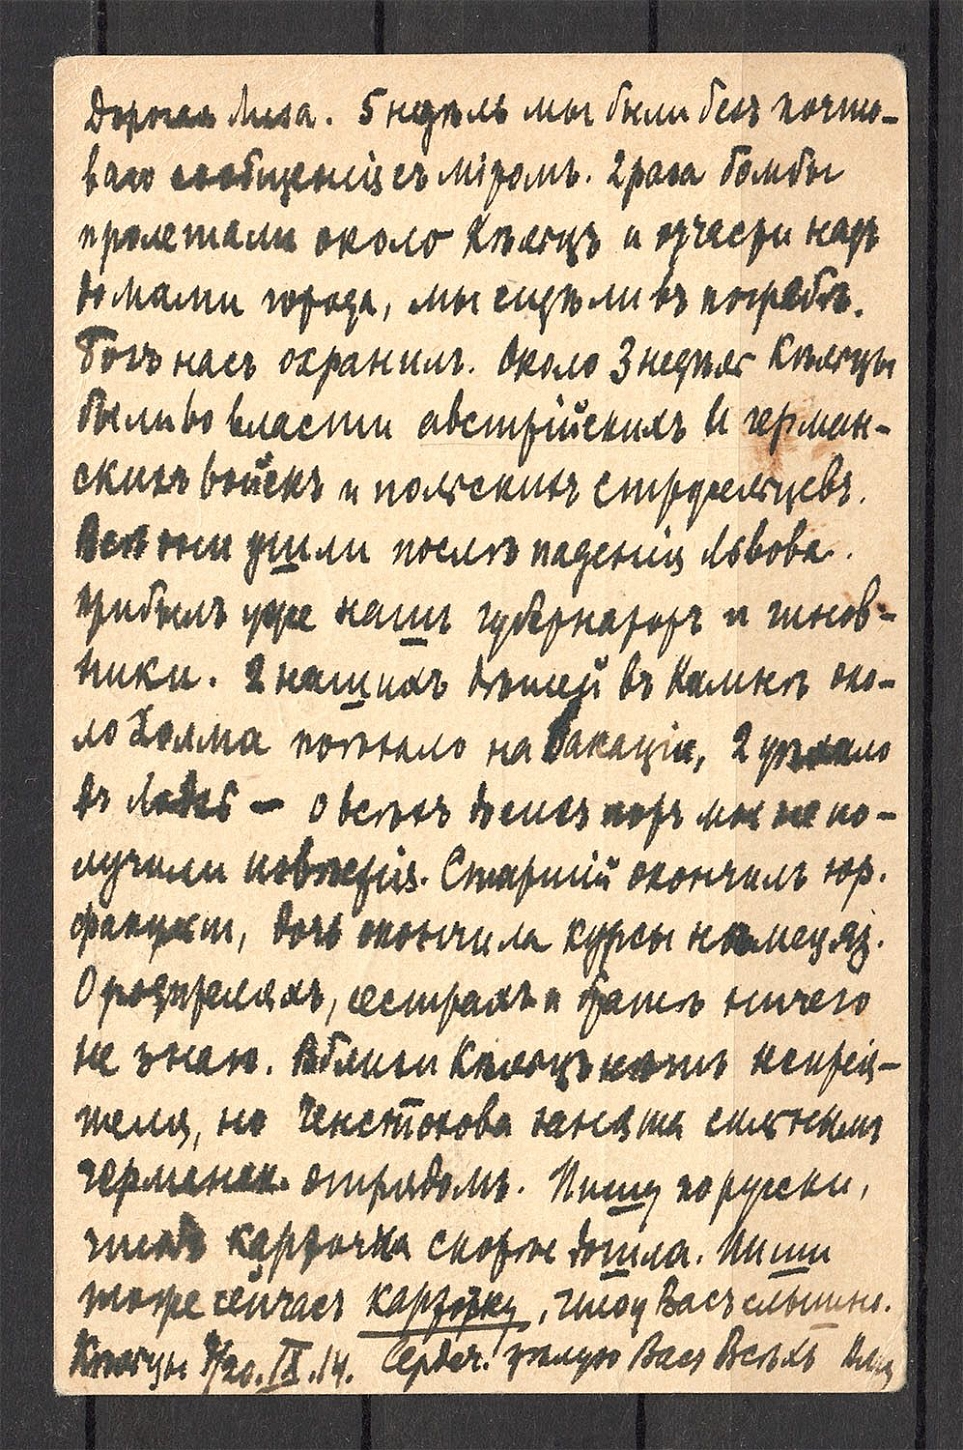 Дорогая Лиза. 5 недѣль мы были безъ почто-
ваго сообщенія съ міромъ. 2 раза бомбы
пролетали около Кѣлецъ и отчасти надъ
домами города, мы сидѣли въ погребѣ.
Богъ насъ охранилъ. Около 3 недѣль Кѣльцы
были во власти австрійскихъ и герман-
скихъ войскъ и польскихъ стрѣльцевъ.
Всѣ они ушли послѣ паденія Львова.
Прибылъ уже нашъ губернаторъ и чинов-
ники. 2 нашихъ дѣтей въ Камнѣ око-
ло Холма поѣхало на вакаціи, 2 уѣхало
въ Лодзь — о всѣхъ до сихъ поръ мы не по-
лучили извѣстія. Старшій окончилъ юр.
факульт, дочь окончила курсы нѣмец яз.
О родителяхъ, сестрахъ и братѣ ничего
не знаю. Вблизи Кѣлецъ нѣтъ непрія-
теля, но Ченстохова занята сильнымъ
германск. отрядомъ. Пишу по русски,
чтобъ карточка скорѣе дошла. Пиши
тоже сейчасъ карточку, чтоб Васъ слышно.
Кѣльцы 20. IX. 14. Сердеч. цѣлую Васъ Всѣхъ